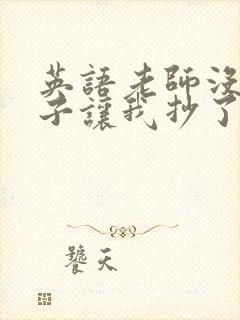 英語老師沒
子讓我抄了
饕天